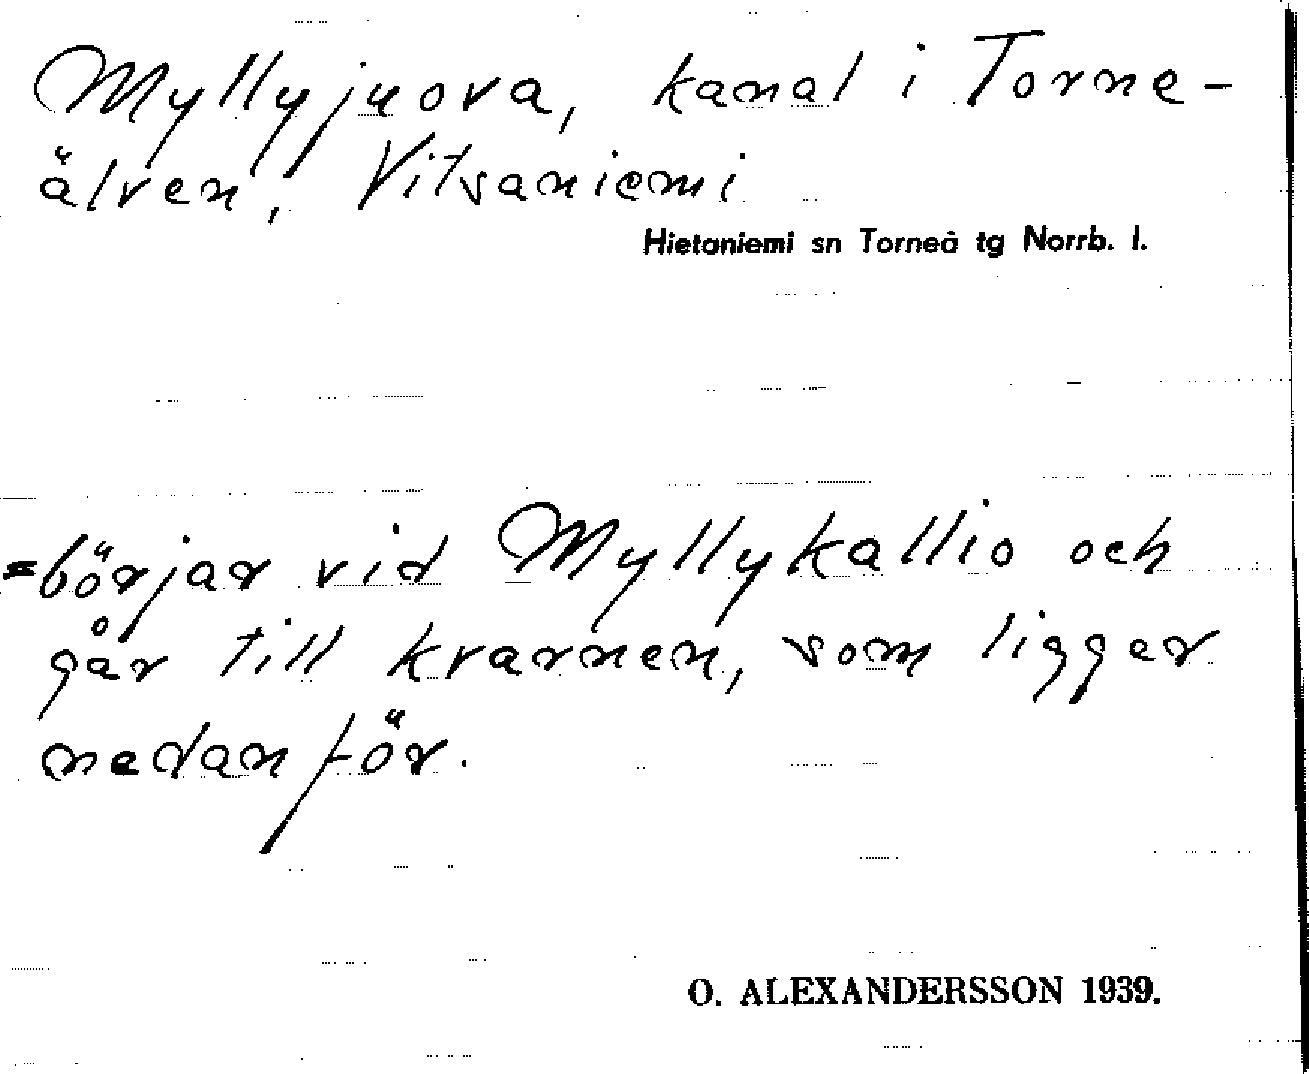 Myllyjuova, kanal i Torne-
älven, Vitsaniemi
Hietaniemi sn Torneå tg Norrb. l.
=börjar vid Myllykallio och
går till kvarnen, som ligger
nedanför.
O. ALEXANDERSSON 1939.